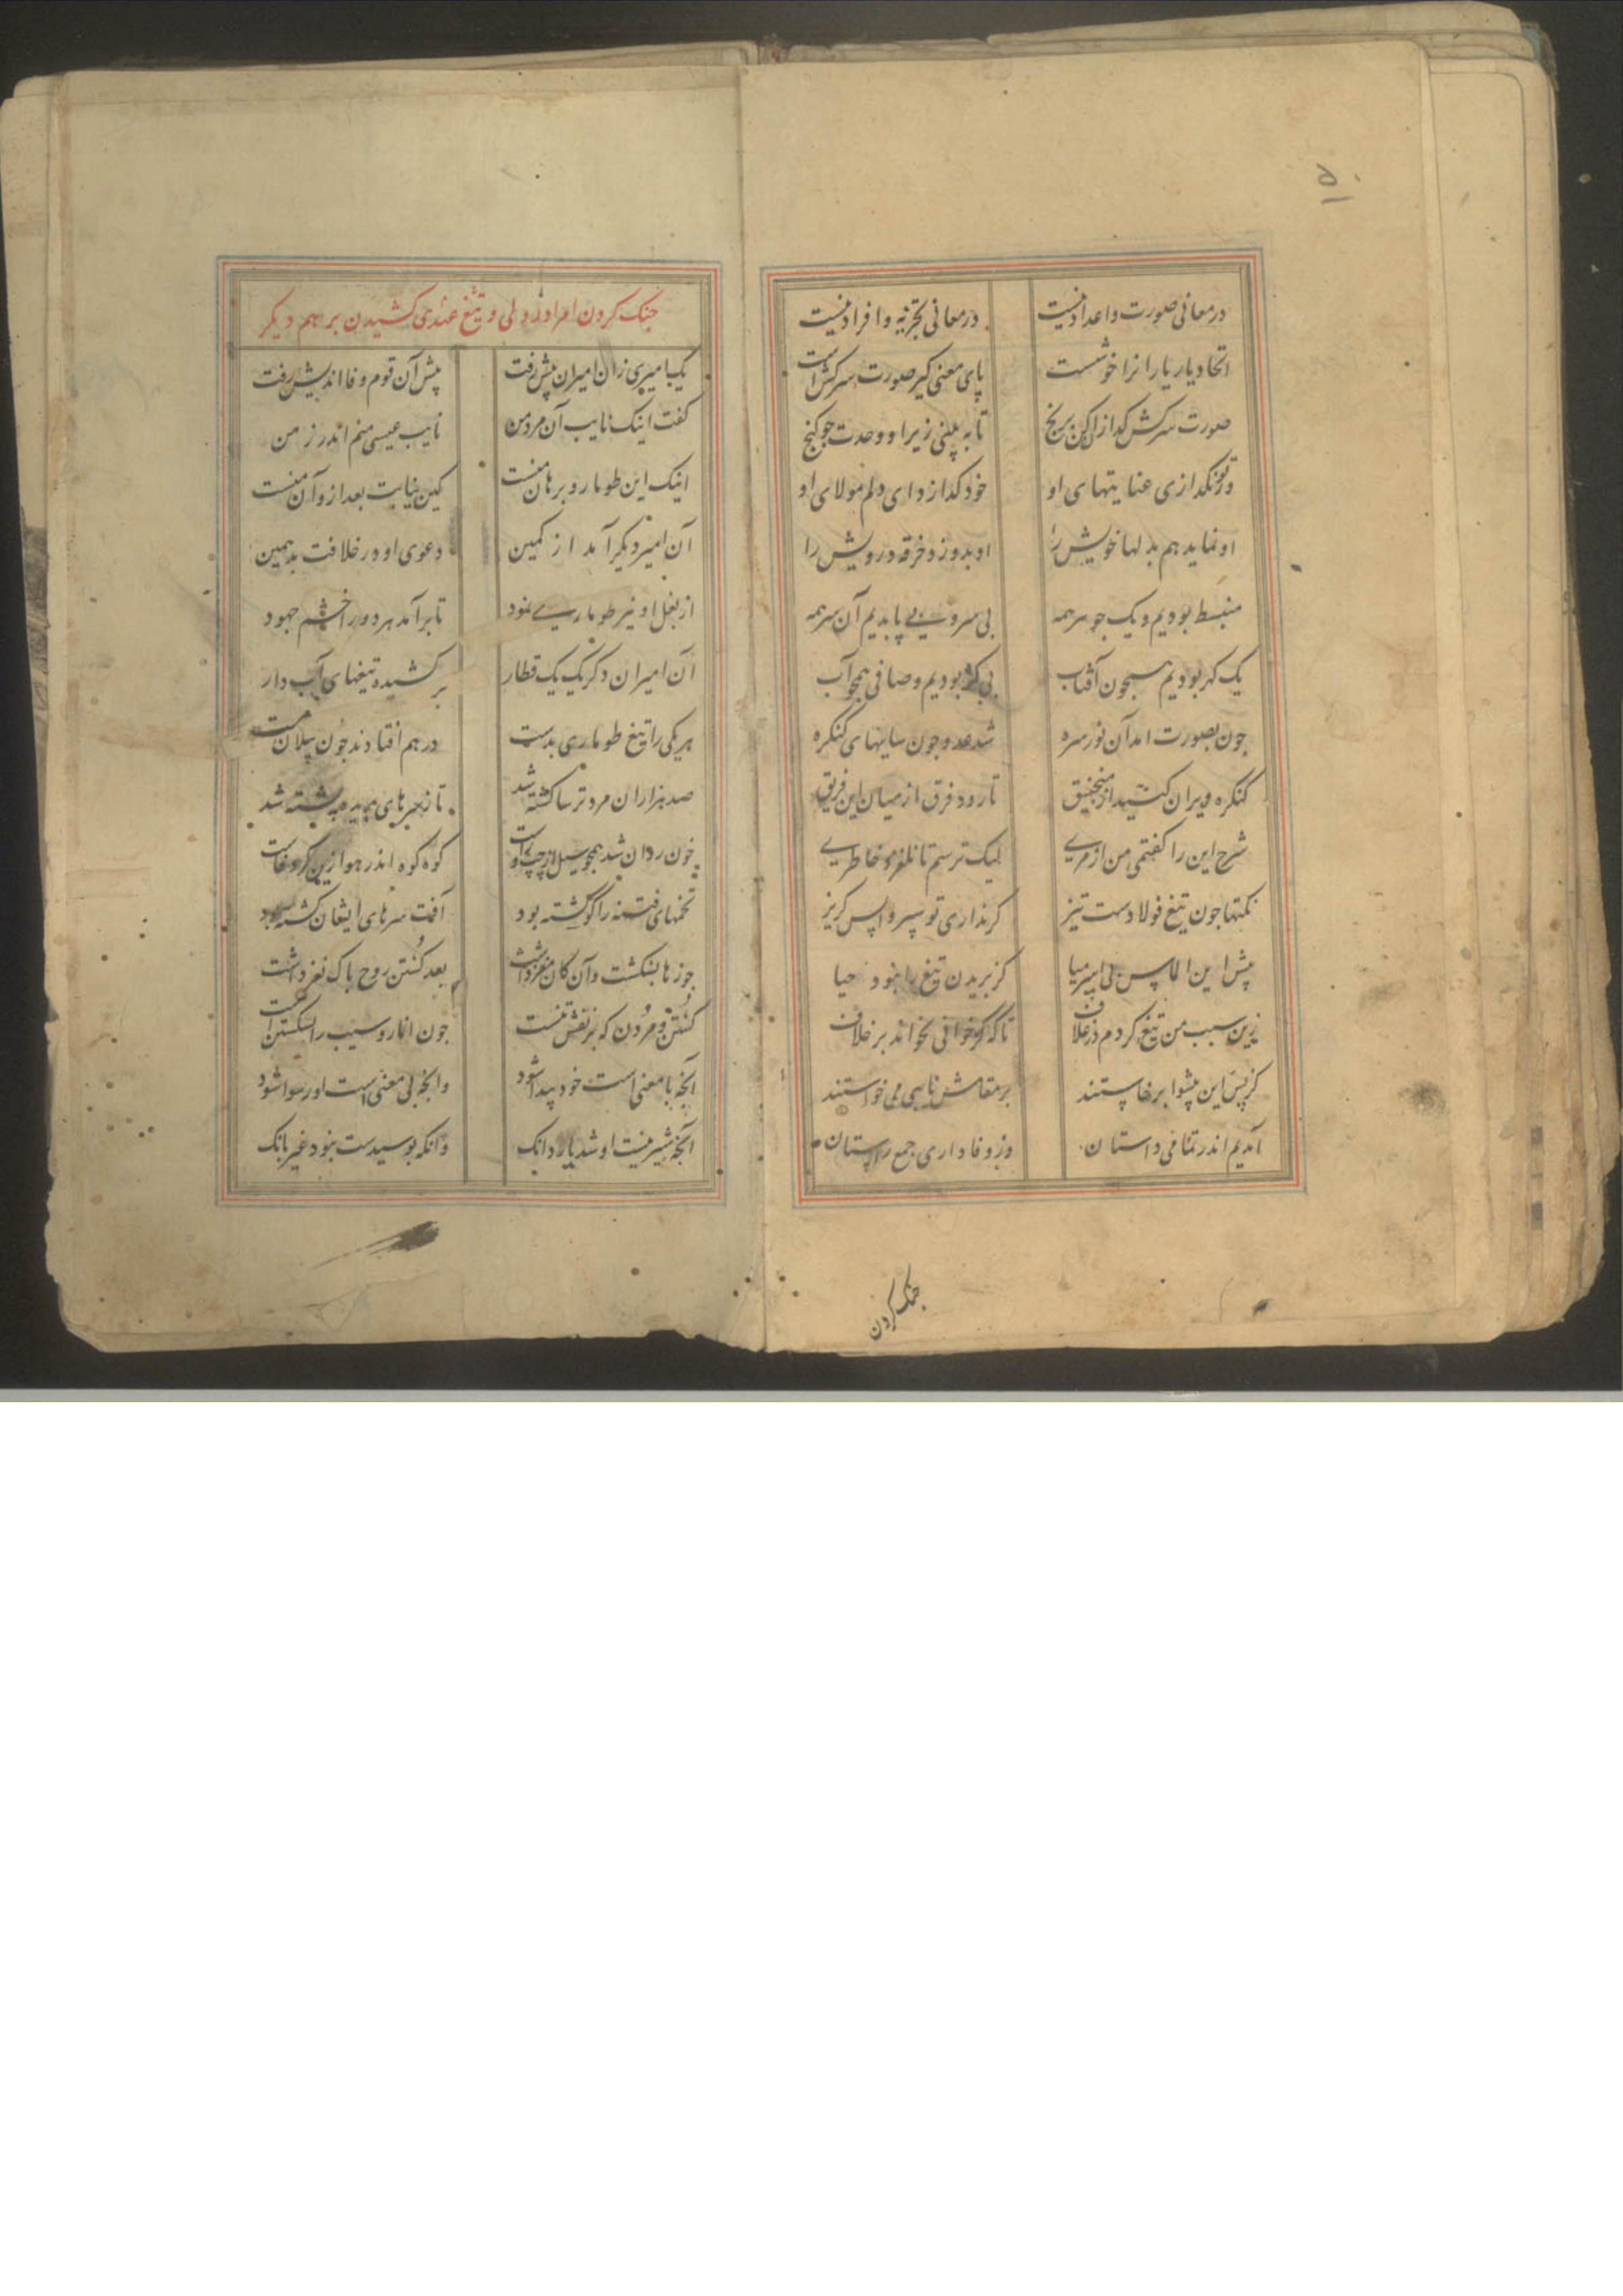 در معانی صورت و اعداد نیست در معانی تجزیه و افراد نیست
اتحاد یار یارانرا خوشست پای معنی کیر صورت سرکش است
صورت سرکش کدازان کن برنج تا به بینی زیر او وحدت جو کنج
ور تو نکدازی عنایتهای او خود کدازد ای دلم مولای او
او نماید هم بدلها خویش را او بدوزد خرقه درویش را
منبسط بودیم و یک جوهر همه بی سر و بی پا بدیم آن سر همه
یک کهر بودیم همچون آفتاب بی کره بودیم و صافی همچو آب
جون بصورت امد آن نور سره شد عدد جون سایهای کنکره
کنکره ویران کنید از منجنیق تا رود فرق از میان این فریق
شرح این را کفتمی من از مری لیک ترسم تا نلغزد خاطری
نکتها جون تیغ فولادست تیز کر نداری تو سپر واپس کریز
پیش این الماس بی اسپر میا کز بریدن تیغ را نبود حیا
زین سبب من تیغ کردم در غلاف تا که کژخوانی نخواند بر خلاف
آمدیم اندر تمامی داستان وز وفاداری جمع راستان
کز پس این پیشوا برخاستند بر مقامش نایبی می خواستند
جنک کردن
جنک کردن امرا در ولی و تیغ عهدی کشیدن بر هم دیکر
یک امیری زان امیران پیش رفت پیش آن قوم وفا اندیش رفت
کفت اینک نایب آن مرد من نایب عیسی منم اندر زمن
اینک این طومار و برهان منست کین نیابت بعد ازو آن منست
آن امیر دیکر آمد از کمین دعوی او در خلافت بد همین
از بغل او نیز طوماری نمود تا برآمد هر دو را خشم جهود
آن امیران دکر یک یک قطار برکشیده تیغهای آب دار
هر یکی را تیغ طوماری بدست در هم افتادند جون پیلان مست
صد هزاران مرد ترسا کشته شد تا ز سرهای بریده پشته شد
خون روان شد همچو سیل از چپ و راست کوه کوه اندر هوا زین کرد خاست
تخمهای فتنه را کو کشته بود آفت سرهای ایشان کشته بود
جوزها بشکست و آن کان مغز داشت بعد کشتن روح پاک نغز داشت
کشتن و مردن که بر نقش تنست جون انار و سیب را بشکستن است
آنچه با معنی است خود پیدا شود وانچه بی معنی است او رسوا شود
آنچه شیرینست او شد یار دانک وانکه پوسیدست نبود غیر بانک